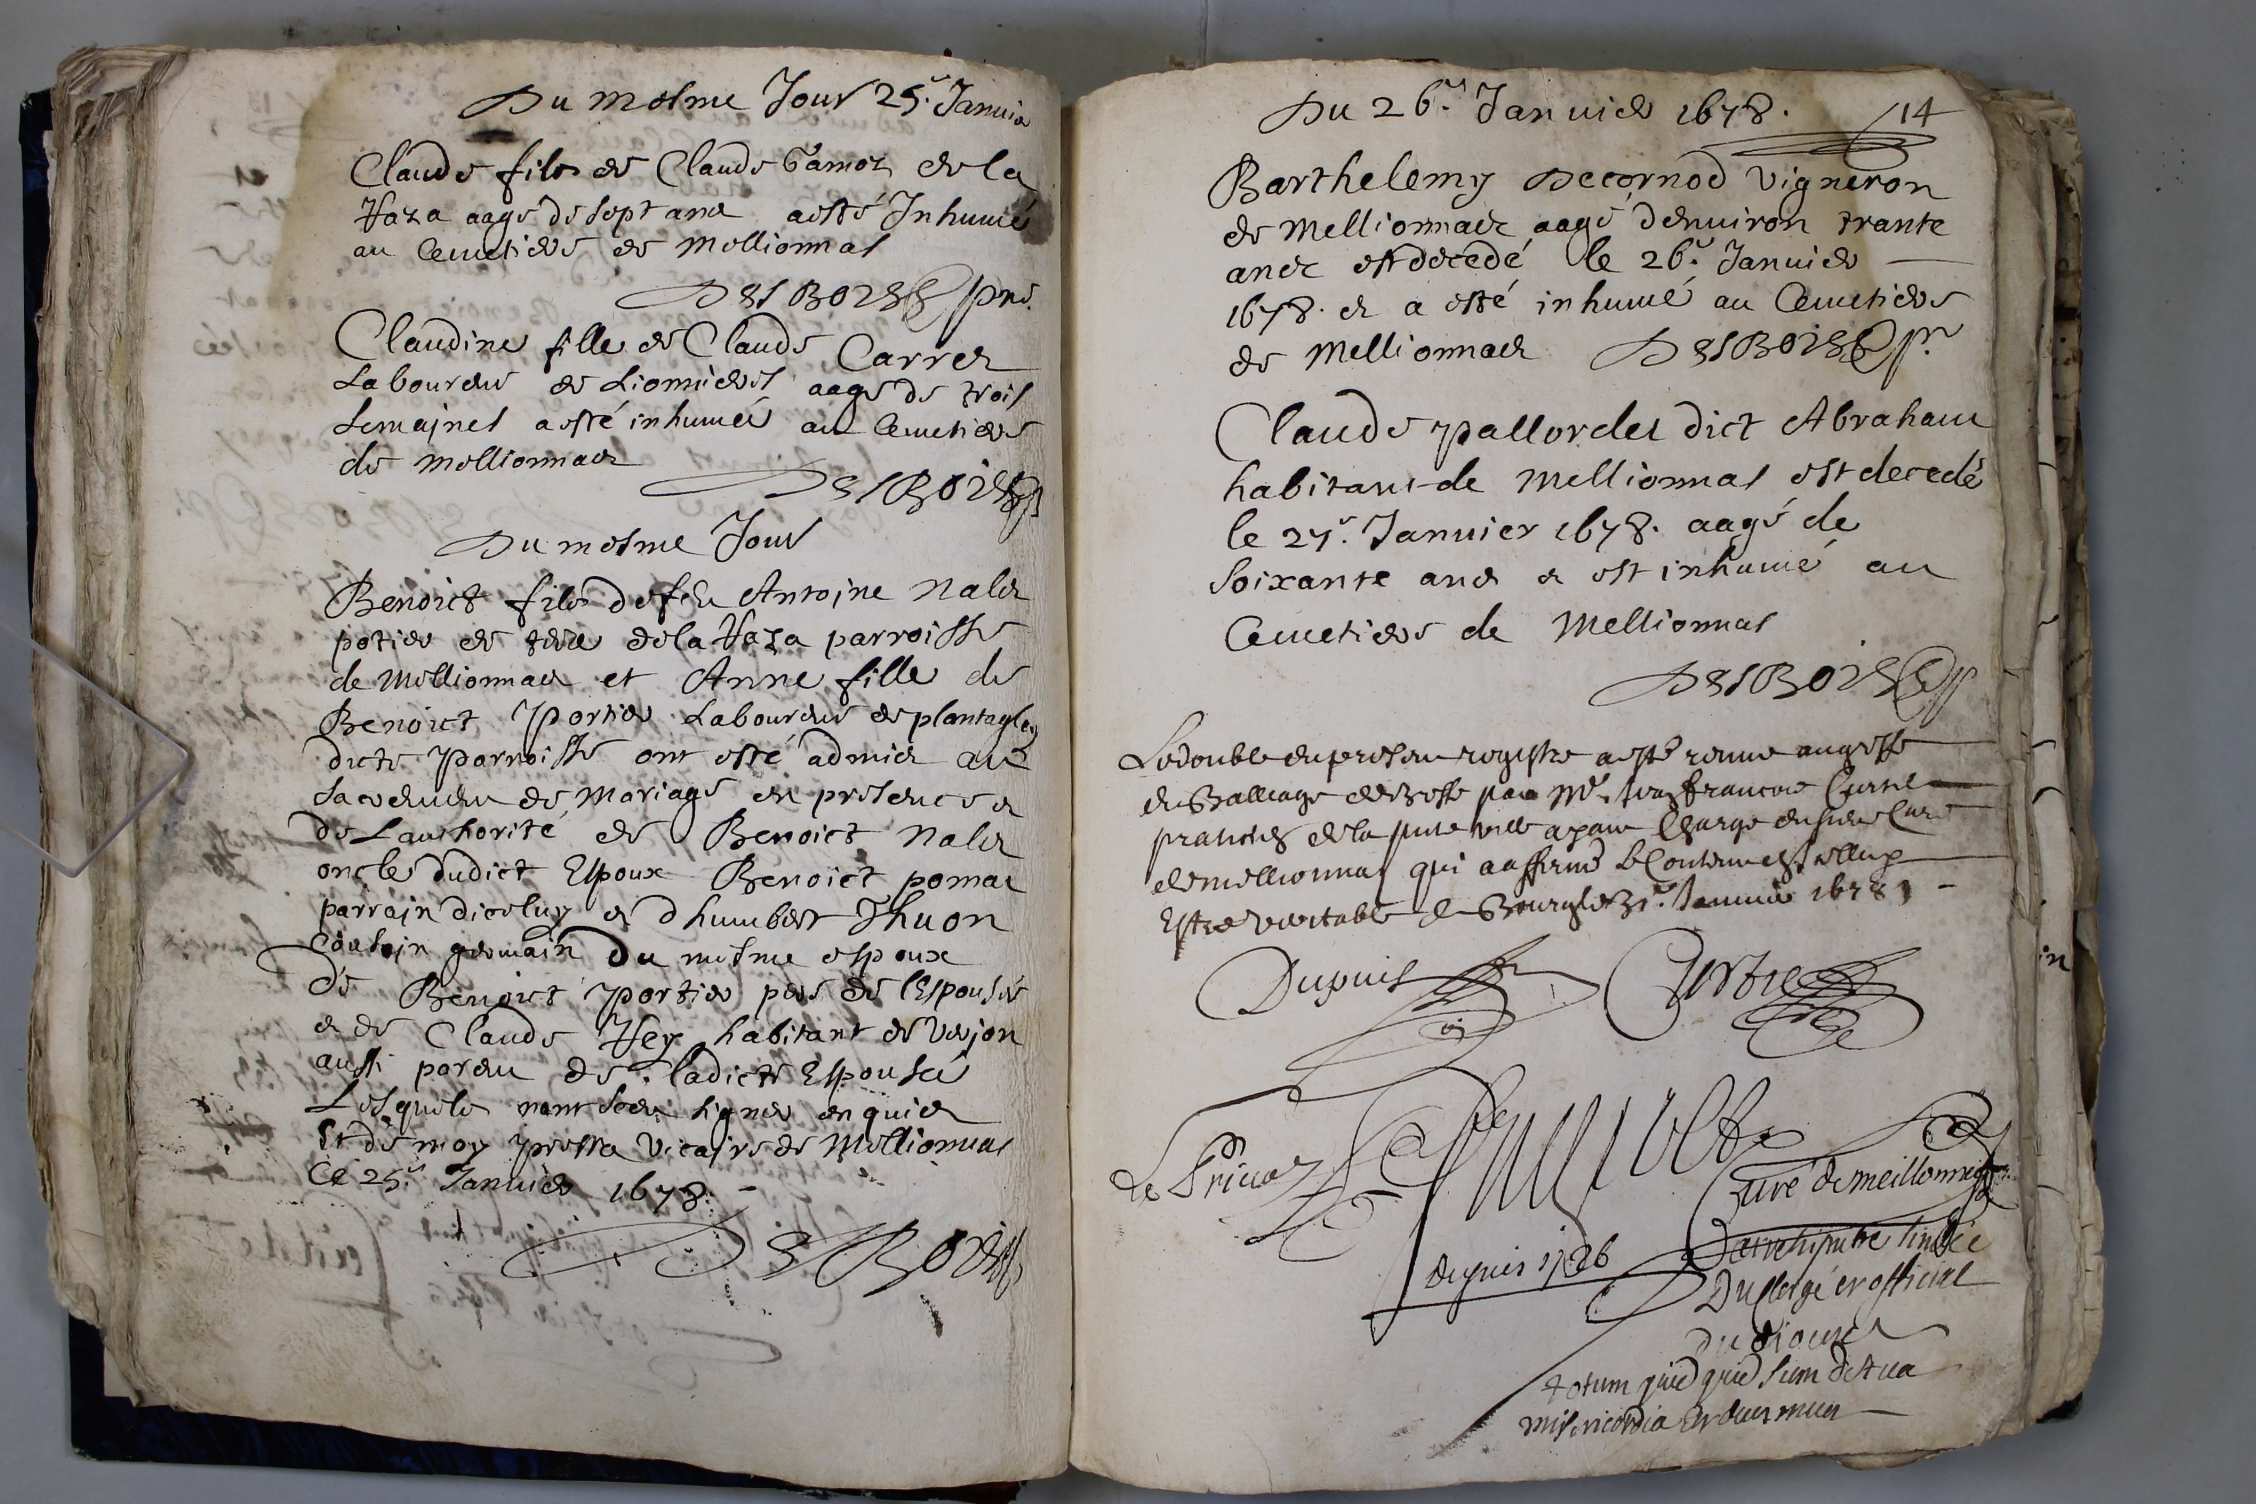 Du mesme Jour 25.e Januier
Claude fils de Claude de la
Haza aagé de sept ans a esté Inhumé
au Cemetiere de Mellionnas
DesBois pre.
Claudine fille de Claude Carrez
Laboureur de aagé de trois
Semaines a esté inhumeé au Cemetiere
de mellionnaz
DesBois
Du mesme Jour
Benoict fils de feu Antoine Nalez
potier de terre de la Haza parroisse
de Mellionnaz et Anne fille de
Benoict Portier Laboureur de
dicte Parroisse ont esté admis au
Sacrement de Mariage en presence &
de Lauthorité de Benoict Nalez
oncle dudict Espoux Benoict
parrain diceluy & dhumbert Thuon
Cousin germain Du mesme espoux
De Benoict Portier pere de lEspouseé
& de Claude Hey habitant de Verjon
aussi parent de ladicte Espouseé
Lesquels nont sceu signer enquis
Et de moy Vicaire de Mellionnas
Ce 25.e Januier 1678.
DesBois
Du 26.e Januier 1678.
14
Barthelemy Decornod Vigneron
de Mellionnaz aagé denuiron trante
ans est decedé le 26.e Januier
1678. & a esté inhumé au Cemetiere
de Mellionnaz DesBois pr.
Claude Pallordet dict Abraham
habitant de Mellionnas est decedé
le 27.e Januier 1678. aagé de
Soixante ans & est inhumé au
Cemetiere de Mellionnas
DesBois p
Le double du present registre a esté remis au greffe
du Balliage de Bresse par Me. francois
praticien de la ville ayant Charge du sieur Curé
de mellionnas qui a affirmé le Contenu en
Estre veritable a Bourg le 31.e Januier 1678
Dupuis
Curé de meillonnas
depuis 1726
D'archiprêtre sindic
Du clergé et official
Du diocese
totum quid quid sum de tua
misericordia